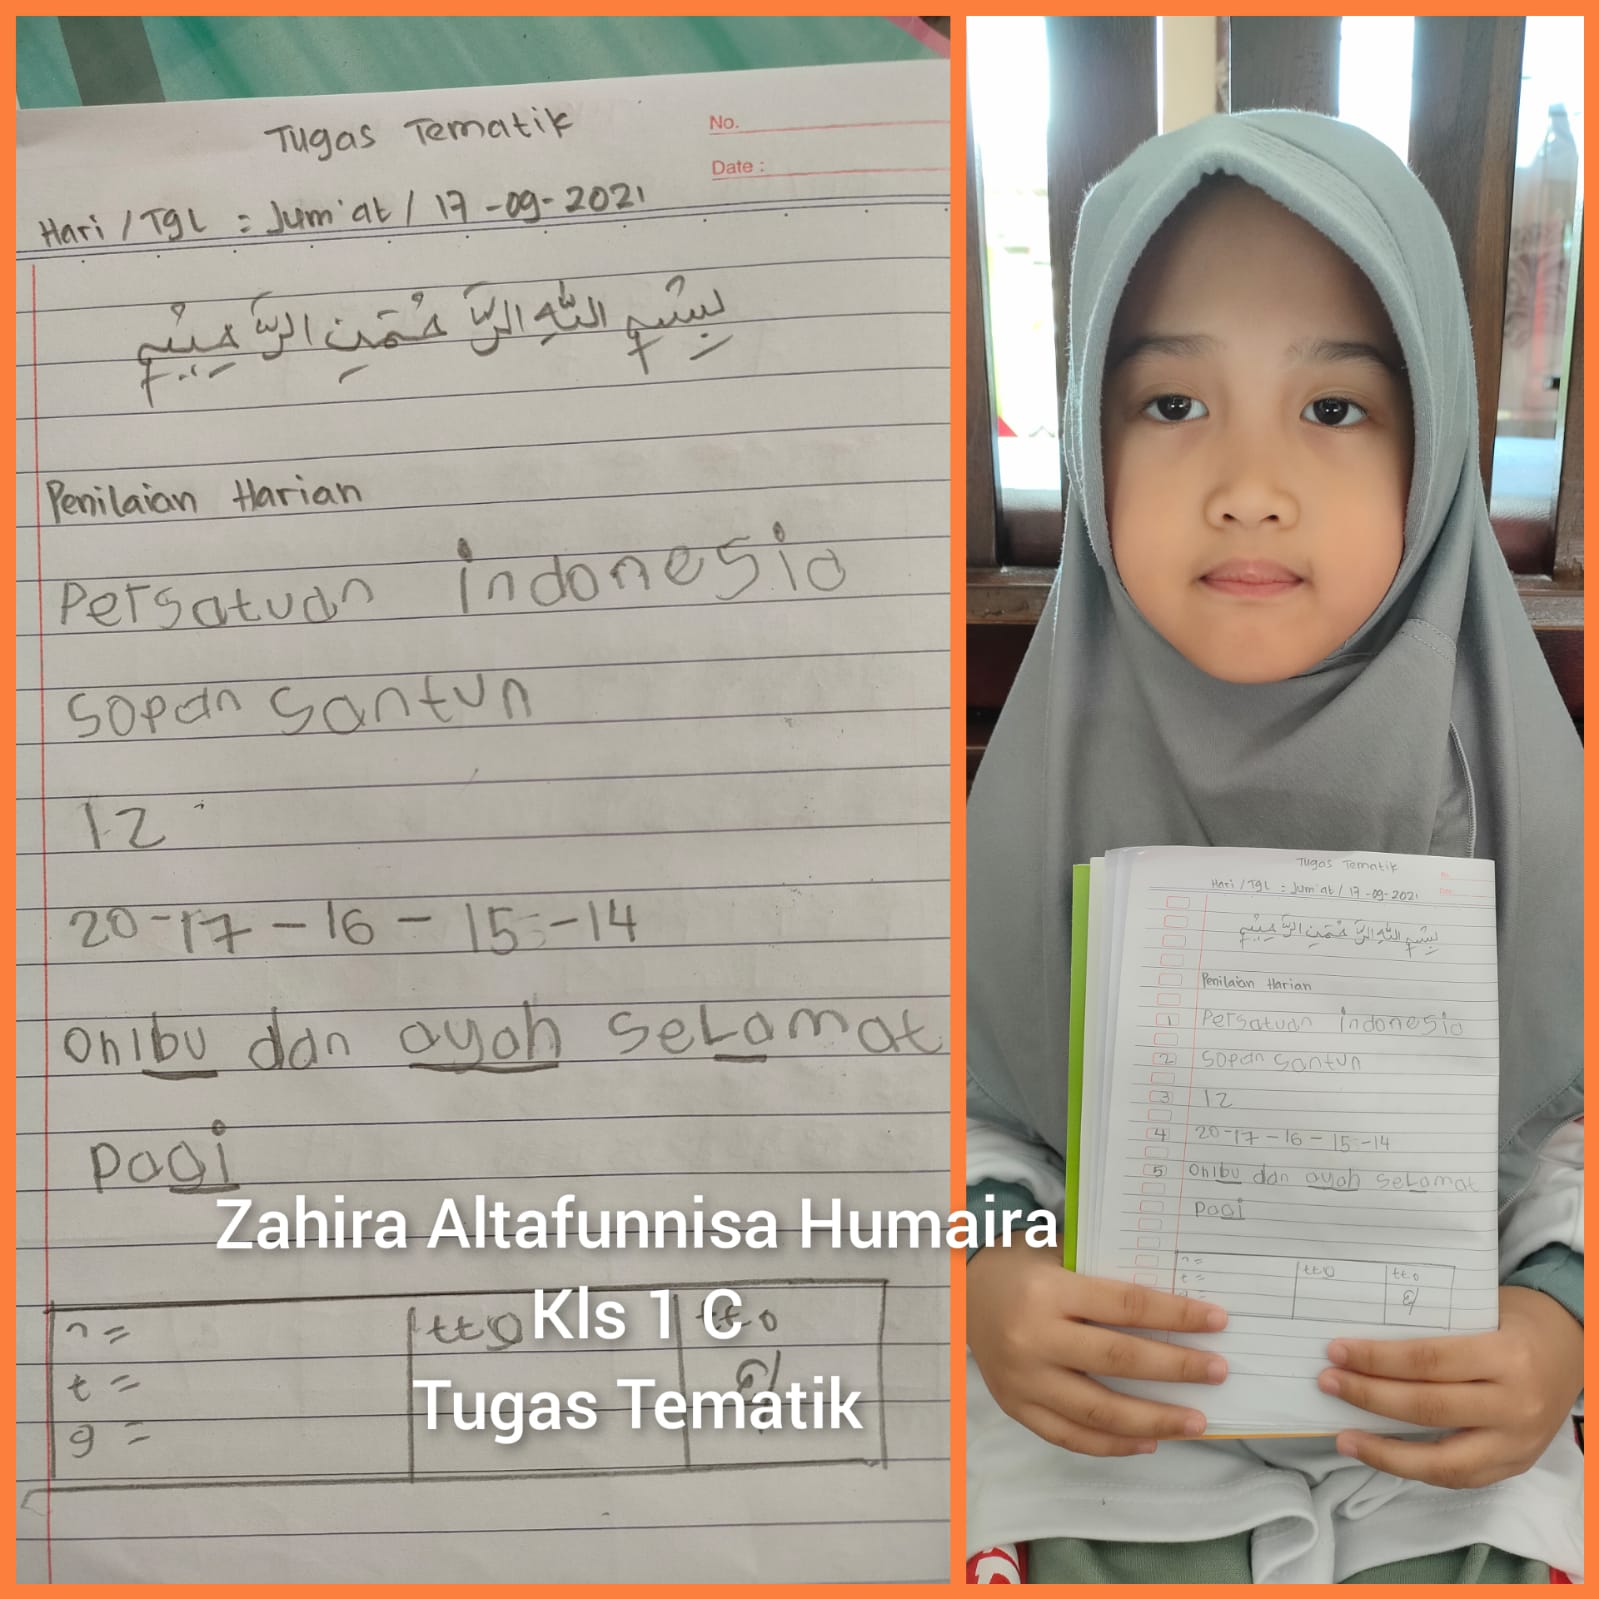 Tugas Tematik
No.
Date :
Hari / Tgl = Jum'at / 17-09-2021
بِسْمِ اللهِ الرَّحْمَنِ الرَّحِيْمِ
Penilaian Harian
Persatuan indonesia
Sopan Santun
12
20-17-16-15-14
onibu dan ayah selamat
pagi
Zahira Altafunnisa Humaira
Kls 1 C
Tugas Tematik
n =
t =
g =
ttg
tto
Tugas Tematik
Hari / Tgl : Jum'at / 17-09-2021
بِسْمِ اللهِ الرَّحْمَنِ الرَّحِيْمِ
Penilaian Harian
1 Persatuan indonesia
2 Sopan Santun
3 12
4 20-17-16-15-14
5 onibu dan ayah selamat
pagi
n =
t =
ttg
tto